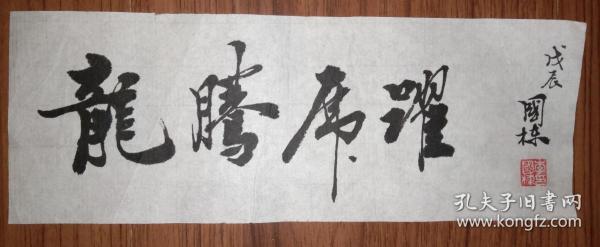 龍騰虎躍
戊辰
國棟
孔夫子旧书网
www.kongfz.com